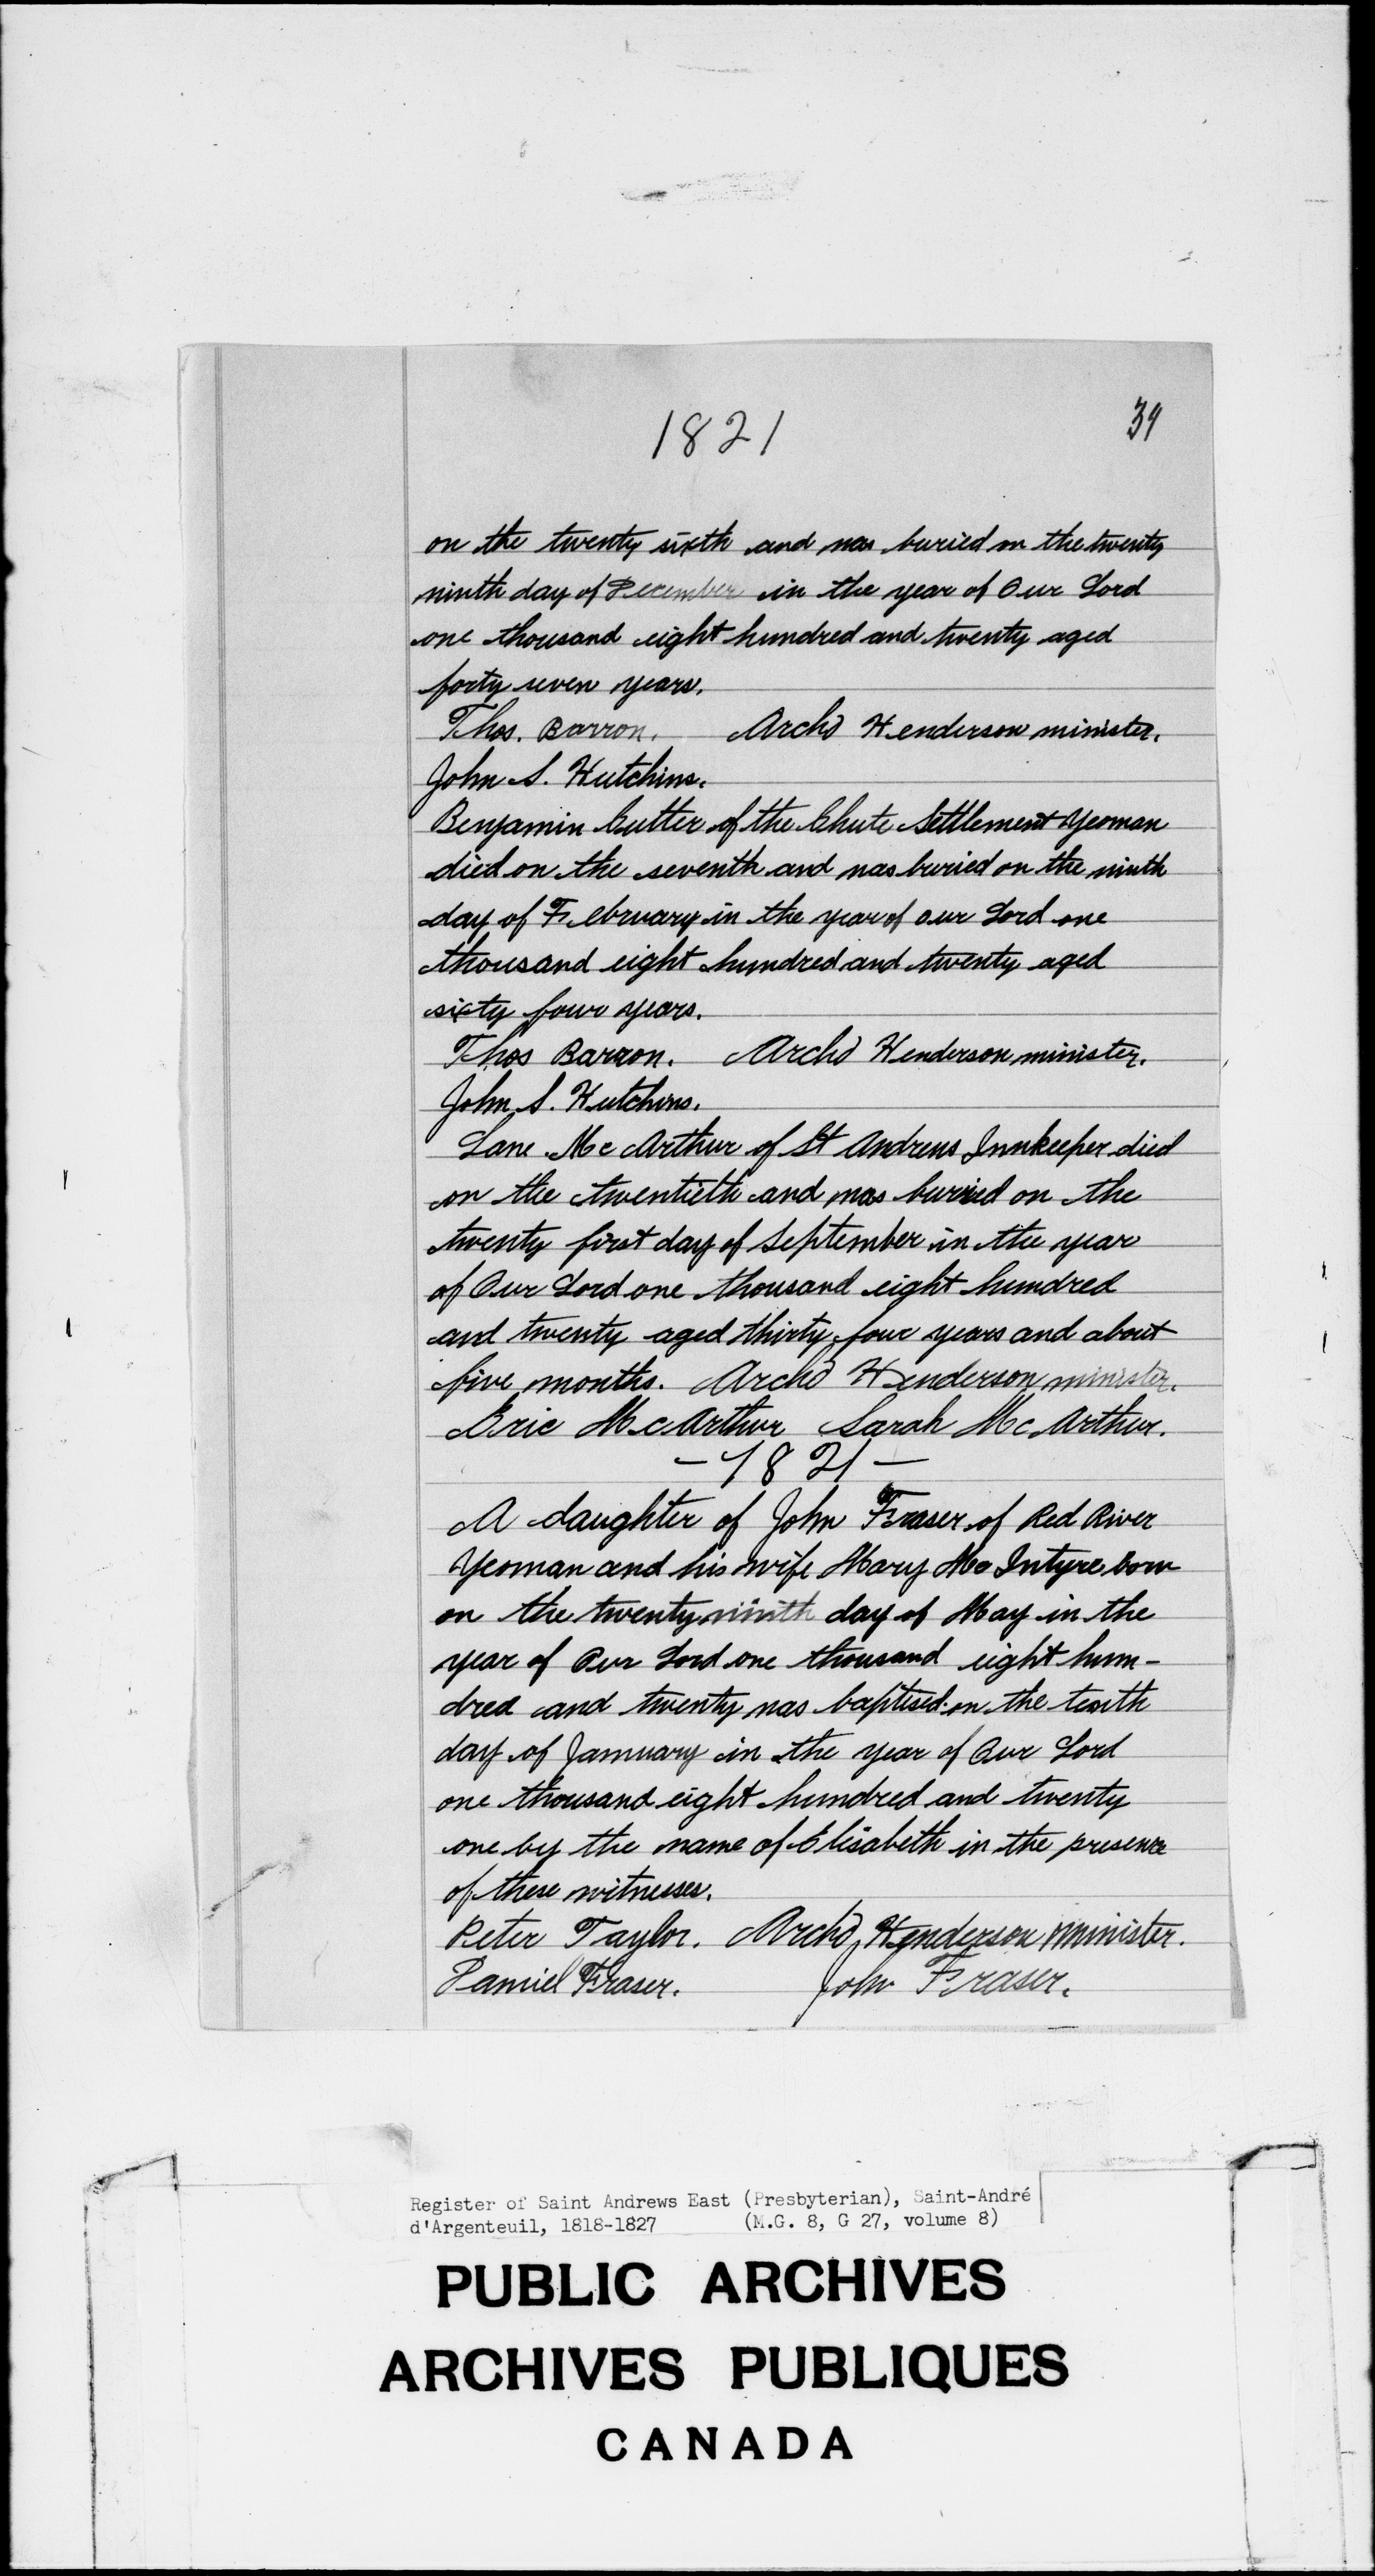 1821
39
on the twenty sixth and was buried on the twenty
ninth day of December in the year of Our Lord
one thousand eight hundred and twenty aged
forty seven years.
Thos. Barron. Archd Henderson minister.
John S. Hutchins.
Benjamin Cutter of the Chute Settlement Yeoman
died on the seventh and was buried on the ninth
day of February in the year of our Lord one
thousand eight hundred and twenty aged
sixty four years.
Thos Barron. Archd Henderson minister.
John S. Hutchins.
Lane Mc Arthur of St Andrews Innkeeper died
on the twentieth and was buried on the
twenty first day of September in the year
of Our Lord one thousand eight hundred
and twenty aged thirty four years and about
five months. Archd Henderson minister.
Eric McArthur Sarah McArthur.
- 1821 -
A daughter of John Fraser of Red River
Yeoman and his wife Mary McIntyre born
on the twenty ninth day of May in the
year of Our Lord one thousand eight hun-
dred and twenty was baptised on the tenth
day of January in the year of Our Lord
one thousand eight hundred and twenty
one by the name of Elisabeth in the presence
of these witnesses.
Peter Taylor. Archd Henderson minister.
Daniel Fraser. John Fraser.
Register of Saint Andrews East (Presbyterian), Saint-André
d'Argenteuil, 1818-1827 (M.G. 8, G 27, volume 8)
PUBLIC ARCHIVES
ARCHIVES PUBLIQUES
CANADA